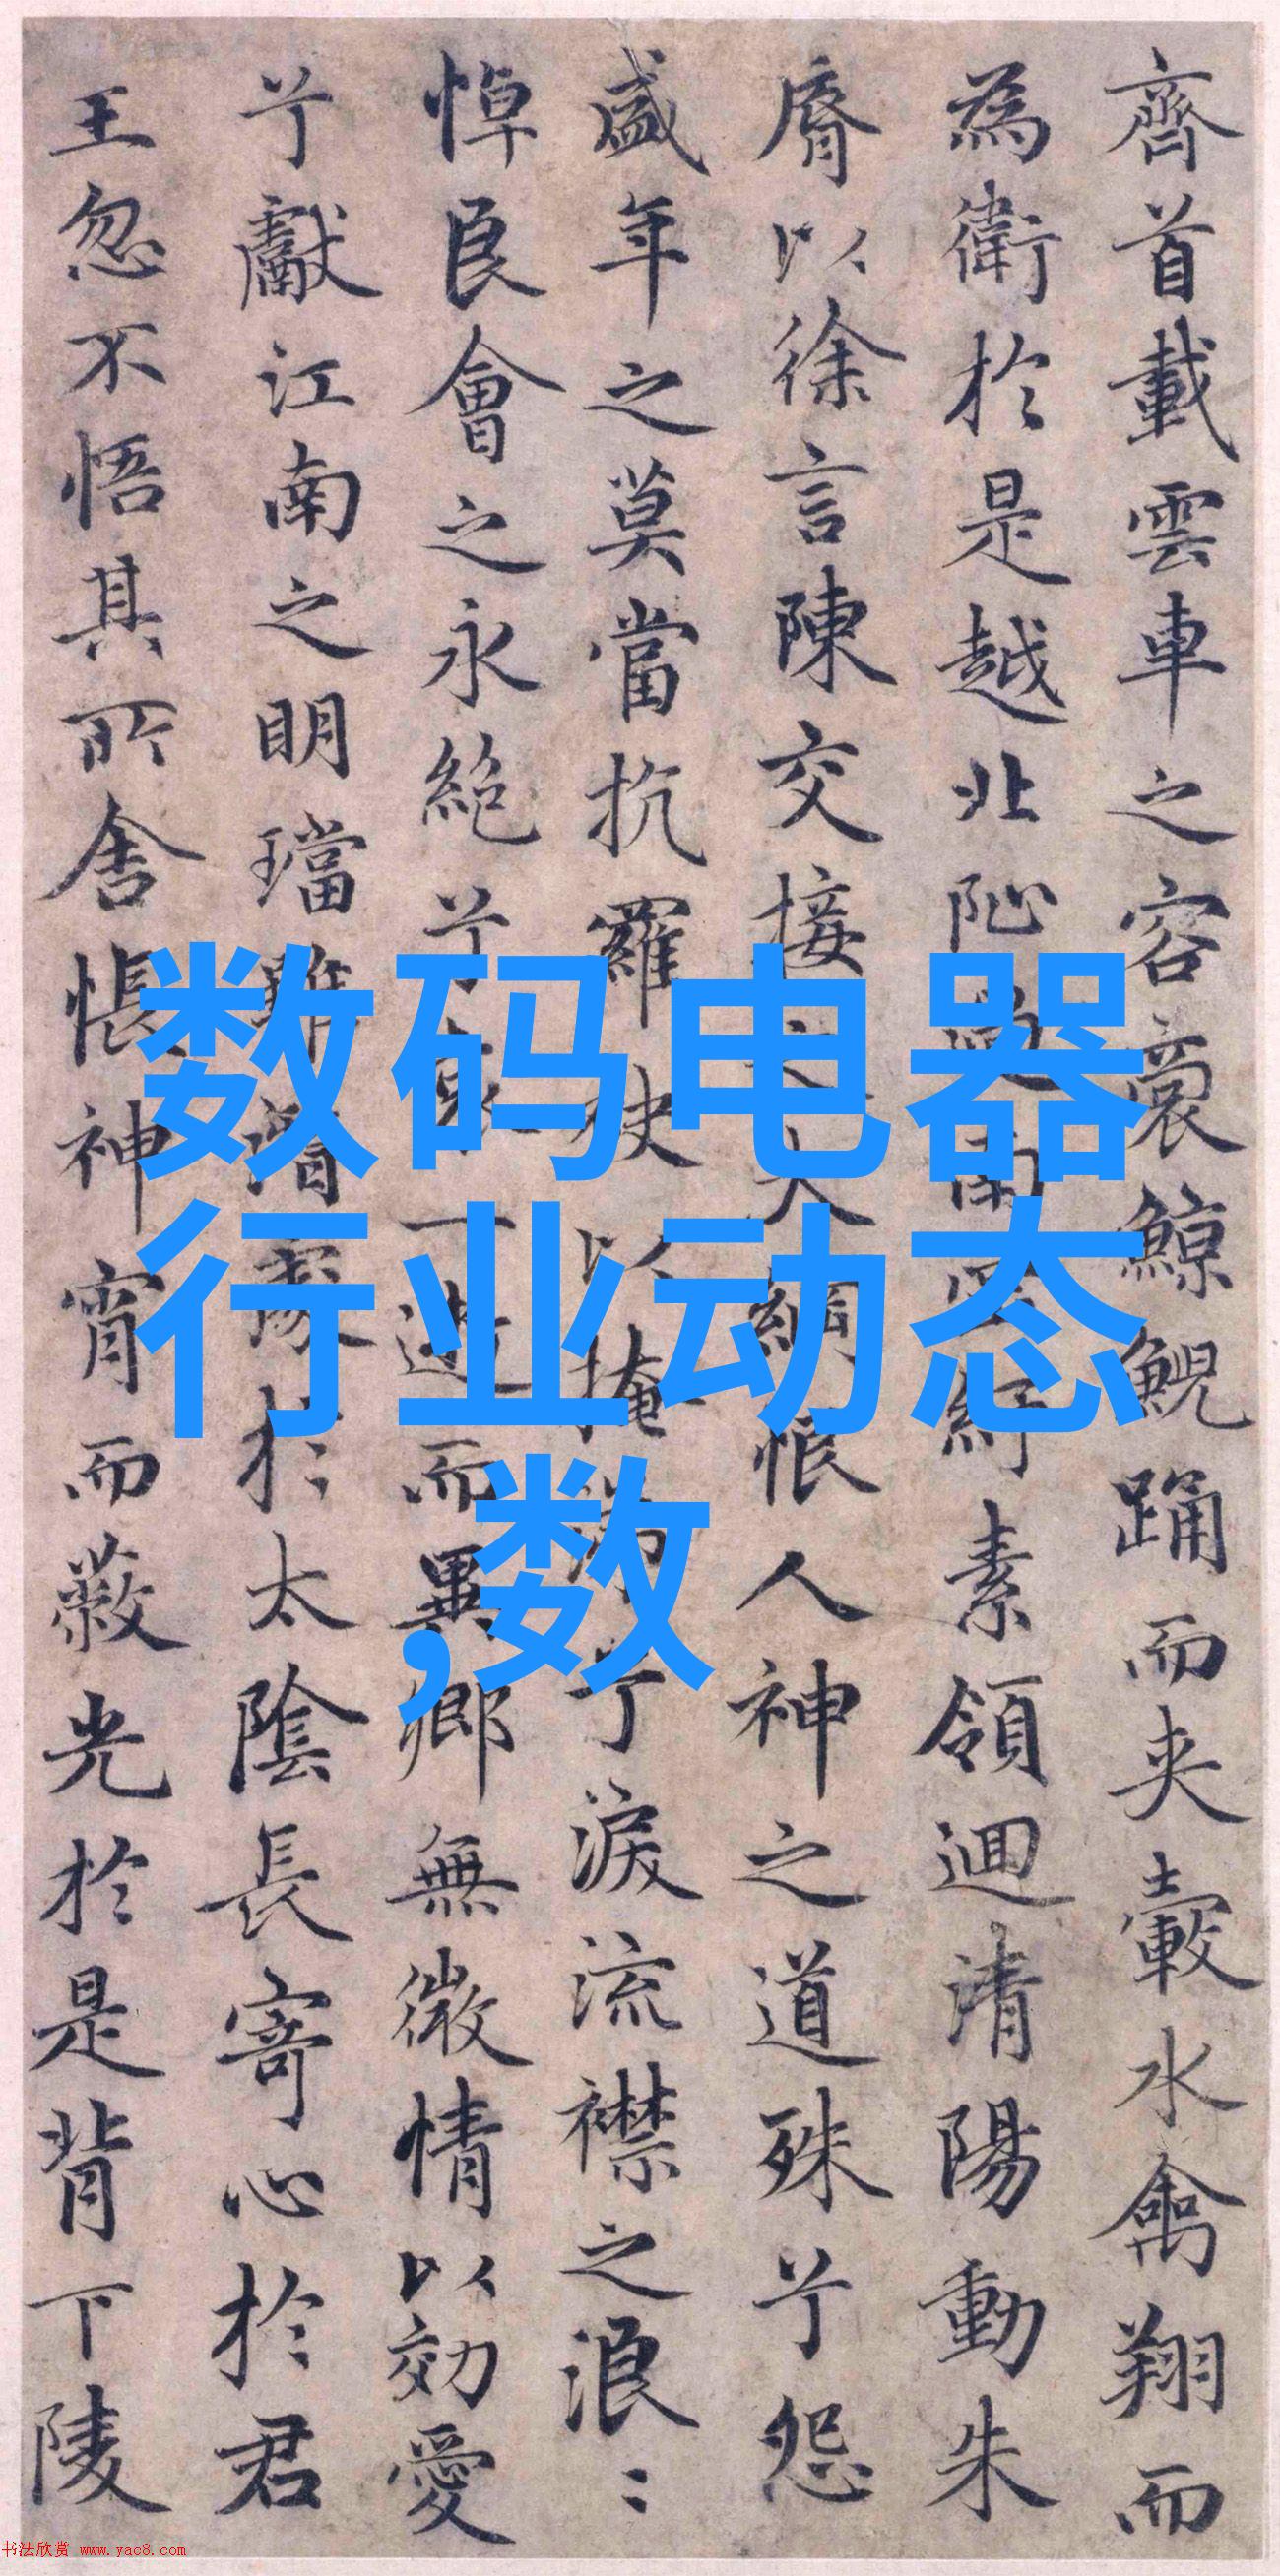 齊首載雲車之容裔鯨鯢踊而夾轂水禽翔而
為衛於是越北沚過南岡紆素領迴清陽動朱
脣以徐言陳交接之大綱恨人神之道殊兮怨
盛年之莫當抗羅袂以掩涕兮淚流襟之浪〻
悼良會之永絕兮哀一逝而異鄉無微情以効愛
兮獻江南之明璫雖潛處於太陰長寄心於君
王忽不悟其所舍悵神宵而蔽光於是背下陵
数码电器
行业动态
,数
书法欣赏 www.yac8.com